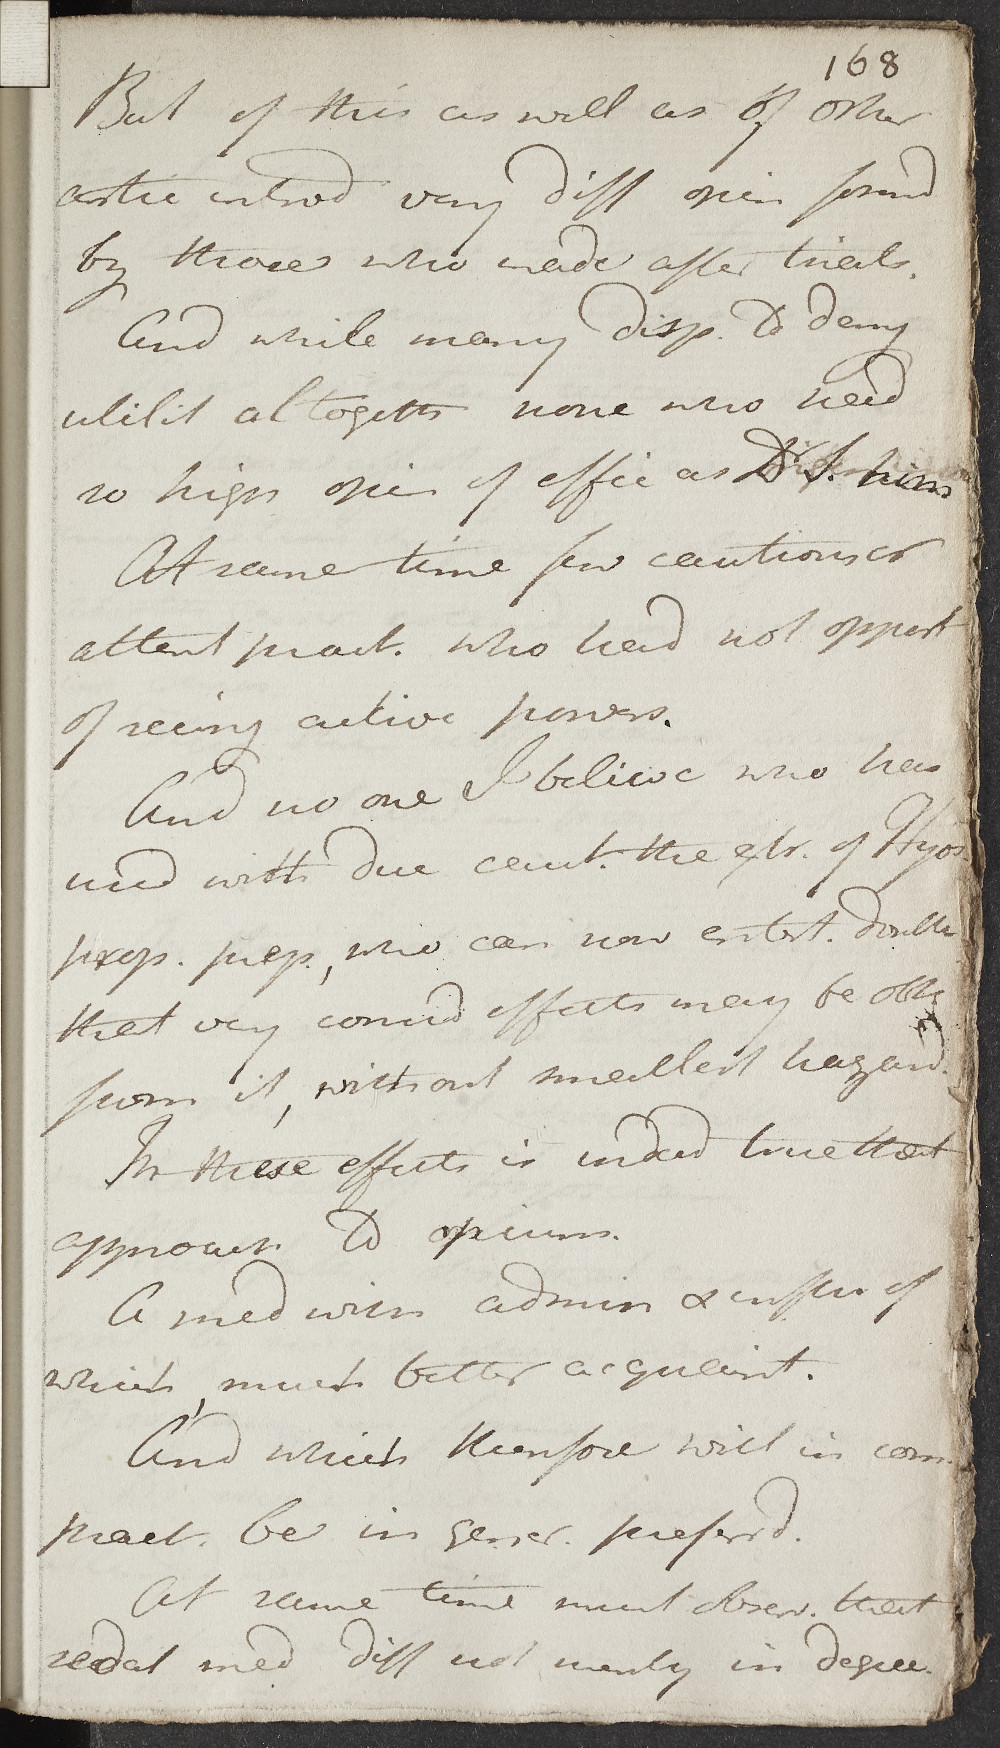 168
But of this as well as of other
artic introd very diff opin formd
by those who made after trials.
And while many disp. to deny
utilit altogeth none who had
so high opin of effic as Dr S. him
At same time few cautious or
attent pract. who had not opport
of seeing active powers.
And no one I believe who has
used with due caut. the extr. of Hyos.
prop. prep., who can now entert. doubt
that very consid effects may be obt
from it, without smallest hazard.
In these effects is indeed true that
approach to opium.
A med with admin & influ of
which, much better acquaint.
And which therefore will in com.
pract. be in gener. preferrd.
At same time must observ. that
sedat med diff not merely in degree.